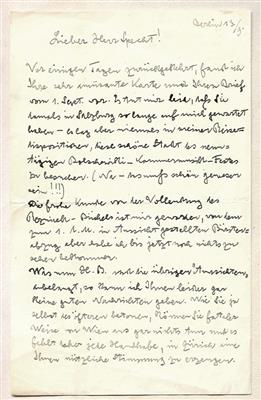 Berlin 13/9.
Lieber Herr Specht!
Vor einigen Tagen zurückgekehrt, fand ich
Ihre sehr amüsante Karte und Ihren Brief
vom 1. Sept. vor. Es tut mir leid, daß Sie
damals in Salzburg so lange auf mich gewartet
haben – es lag aber niemals in meiner Reise-
dispositionen, diese schöne Stadt des
Kammermusik-Festes
zu besuchen. (Na – das muß schön gewesen
sein!!!)
Die frohe Kunde von der Vollendung des
ist mir geworden, von dem
zum 1. d. M. in Aussicht gestellten Bürsten-
abzug aber habe ich bis jetzt noch nichts zu
sehen bekommen.
Was nun die übrigen Aussichten
anbelangt, so kann ich Ihnen leider gar
keine guten Nachrichten geben. Wie Sie ja
selbst des öfteren betonen, können Sie fataler
Weise von Wien aus gar nichts tun und es
fehlt daher jede Handhabe, in Zürich eine
Ihnen nützliche Stimmung zu erzeugen.